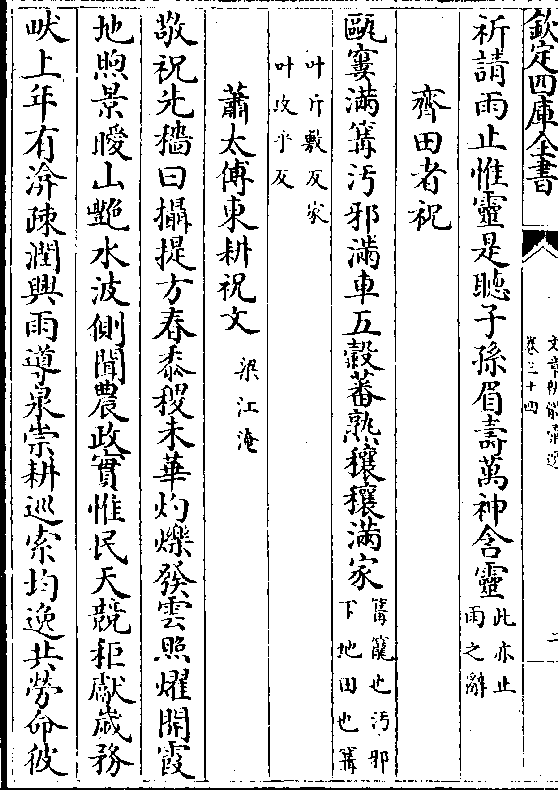 欽定四庫全書
卷三十四
祈請雨止惟靈是聽子孫眉壽萬神含靈此亦止
雨之辭
齊田者祝
甌窶滿篝汚邪滿車五穀蕃熟穰穰滿家篝籠也汚邪
下地田也篝
叶斤敷反家
叶攻乎反
蕭太傅東耕祝文 梁江淹
敬祝先穡曰攝提方春黍稷未華灼爍發雲照燿開霞
地煦景曖山艷水波側聞農政實惟民天競秬獻歲務
畎上年有渰疎潤興雨導泉崇耕巡索均逸共勞命彼